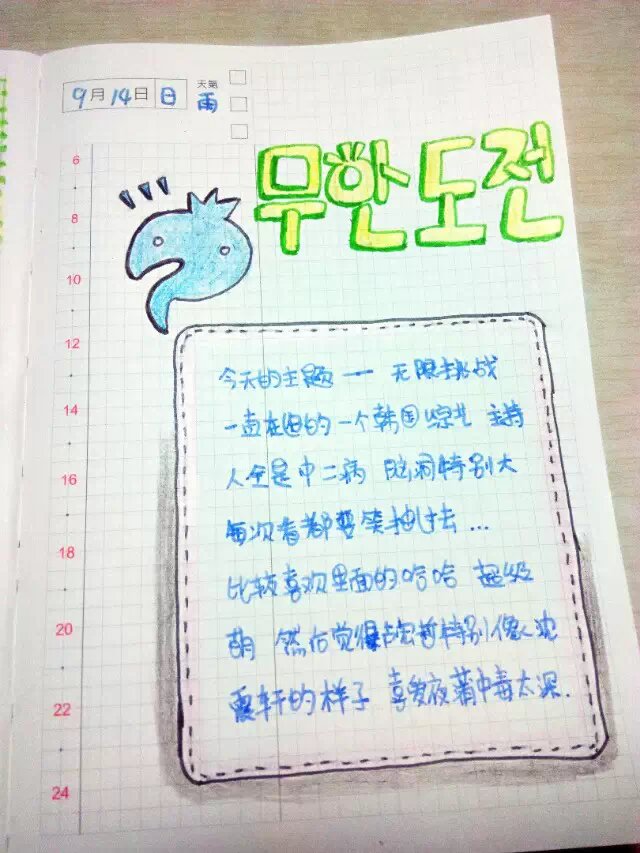 9月14日 日
天氣
雨
무한도전
6
8
10
12
14
16
18
20
22
24
今天的主题 — 无限挑战
一直在追的一个韩国综艺 主持
人全是中二病 脑洞特别大
每次看都要笑抽过去...
比较喜欢里面的哈哈 超级
萌 然后觉得 特别像沈
震轩的样子 喜爱夜蒲中毒太深.